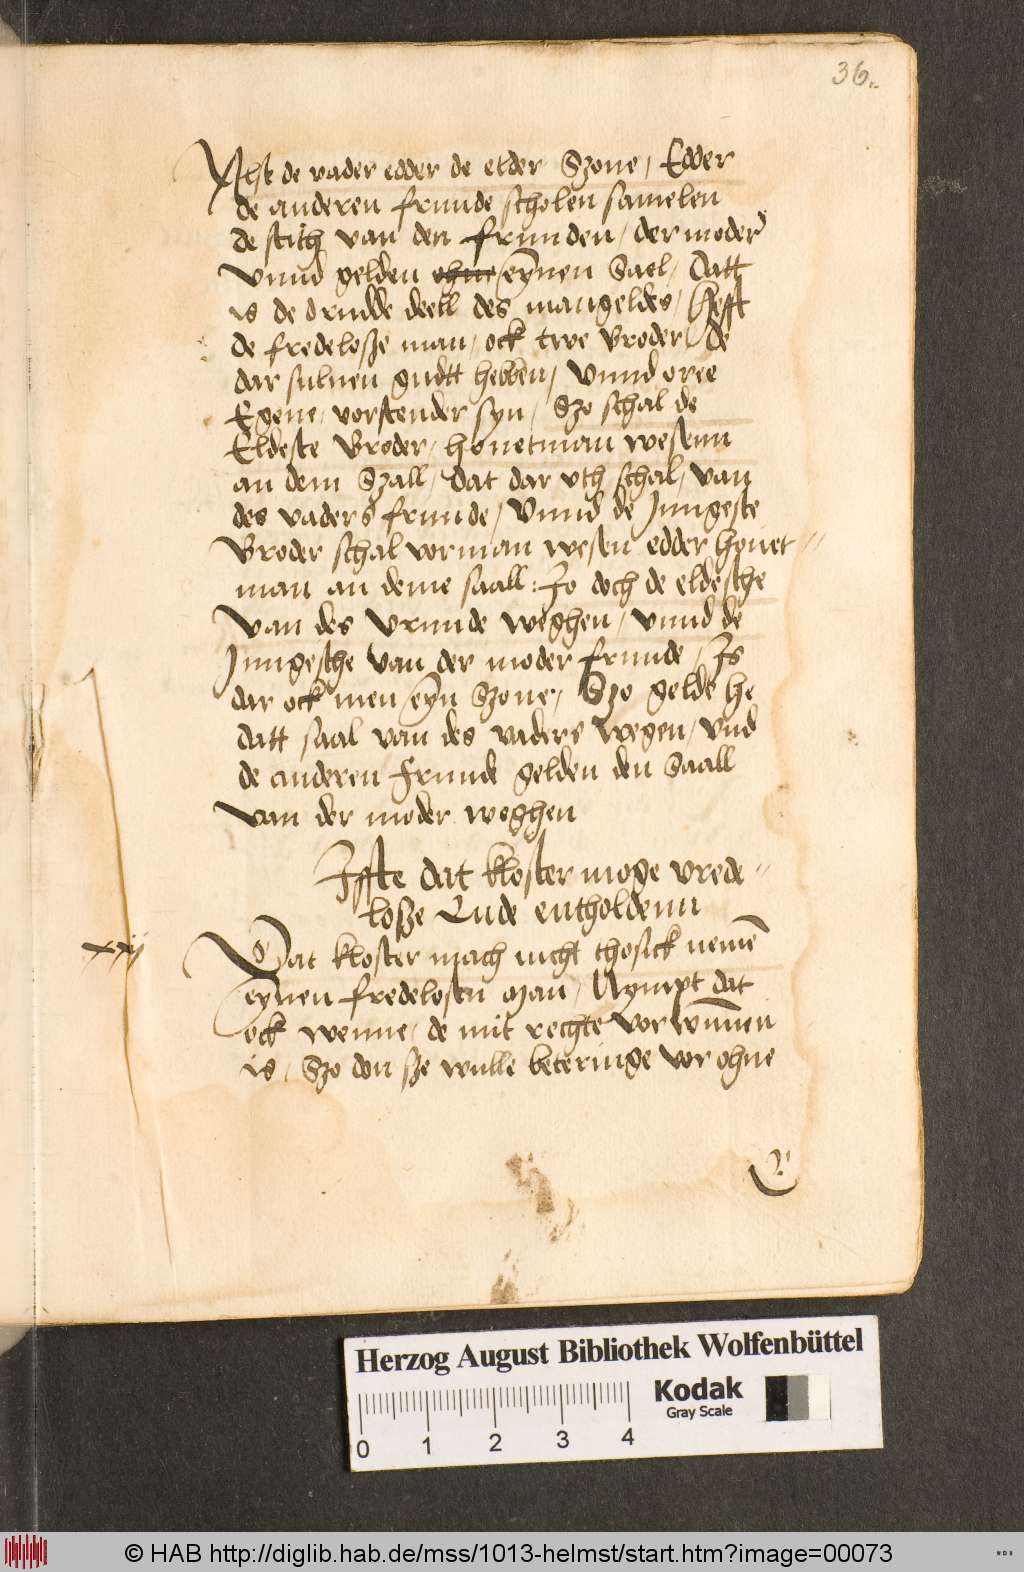 36.
Ichk de vader edder de elder Szone, Edder
de anderen frunde scholen samelen
de stich van den frunden, der moder
Vnnd gelden ohne eÿnen Sael, Datt
is de drudde deell des mangeldes, Hefft
de fredeloße man, ock twe Broder, de
dar suluen gudtt hebben, Vnnd oree
Egene, vorstender syn, Szo schal de
Eldeste Broder, houetman wesenn
an dem Szall, dat dar vth schal, van
des vaders frunde, Vnnd de Jungeste
Broder schal vorman wesen edder houet-
man an deme saall: Jo doch de eldesche
Van des Vrunde weghen, vnnd de
Jungesche van der moder frunde, Is
dar ock men eÿn Szone, Szo gelde he
datt saal van des vaders wegen, vnd
de anderen frunde gelden den Saall
van der moder weghen
Iffte dat kloster moge vrede-
loße Lude entholdenn
xxij
Dat kloster mach nicht thosick nemē
eÿnen fredelosen man, Nympt dat
ock wenne, de mit rechte vorwūnen
is, Szo don sze wulle beteringe vor ohne
Herzog August Bibliothek Wolfenbüttel
Kodak
Gray Scale
0 1 2 3 4
© HAB http://diglib.hab.de/mss/1013-helmst/start.htm?image=00073